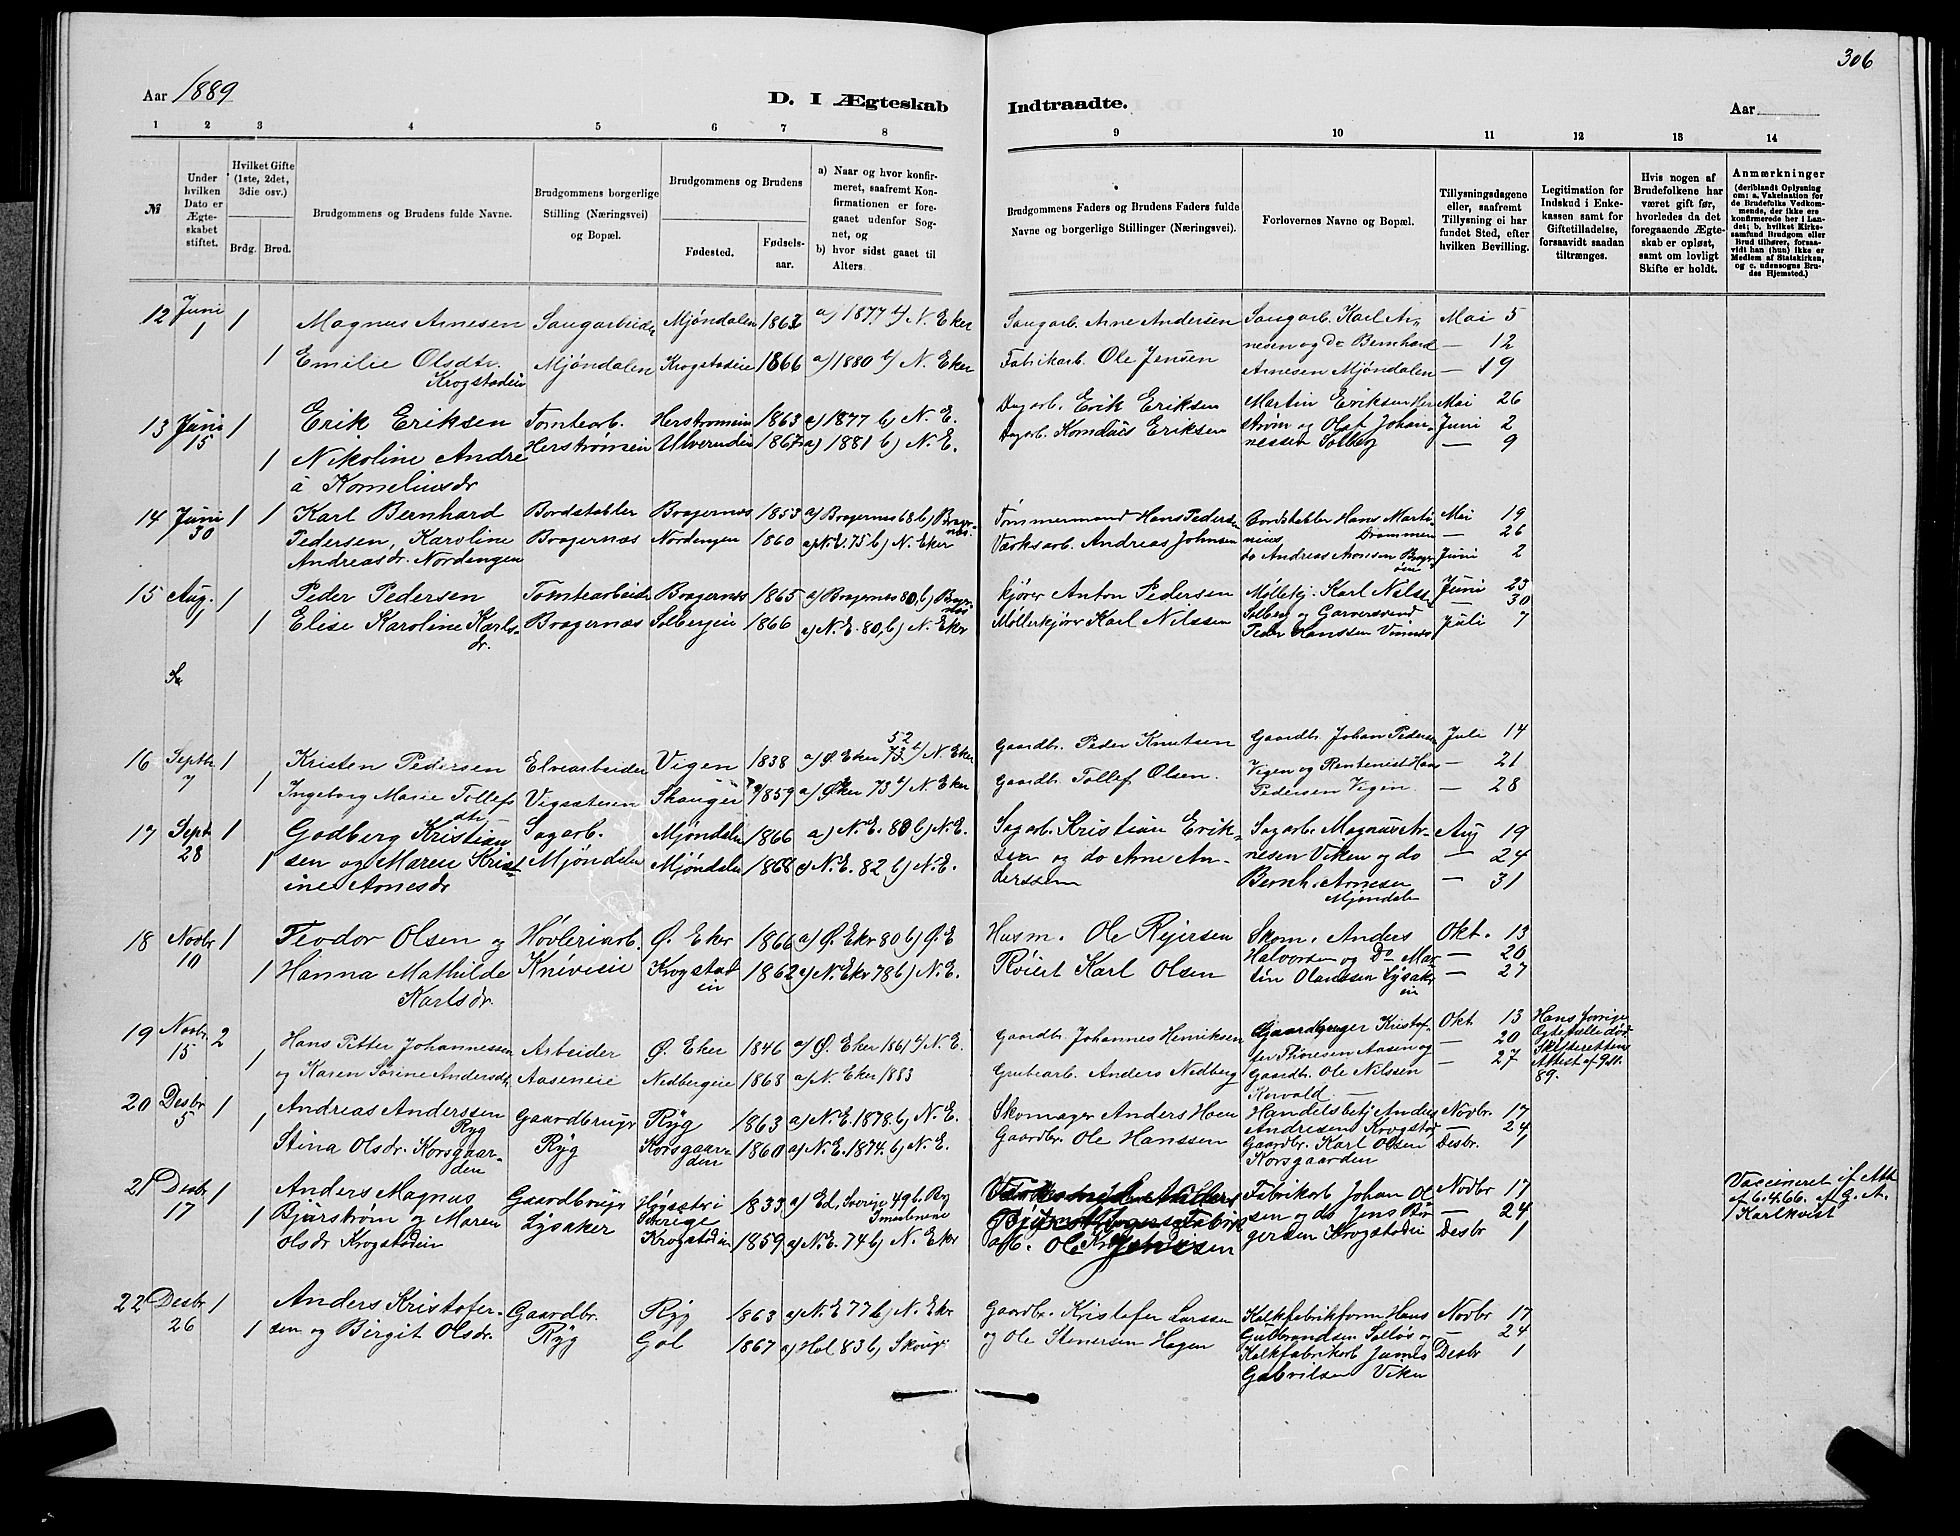 306
Aar 1889
D. I Ægteskab
Indtraadte.
Aar
1 2 3 4 5 6 7 8 9 10 11 12 13 14
№
Under hvilken Dato er Ægteskabet stiftet.
Hvilket Gifte (1ste, 2det, 3die osv.)
Brdg. Brud.
Brudgommens og Brudens fulde Navne.
Brudgommens borgerlige Stilling (Næringsvei) og Bopæl.
Brudgommens og Brudens
Fødested.
Fødsels-aar.
a) Naar og hvor konfirmeret, saafremt Konfirmationen er foregaaet udenfor Sognet, og
b) hvor sidst gaaet til Alters.
Brudgommens Faders og Brudens Faders fulde Navne og borgerlige Stillinger (Næringsvei).
Forlovernes Navne og Bopæl.
Tillysningsdagene eller, saafremt Tillysning ei har fundet Sted, efter hvilken Bevilling.
Legitimation for Indskud i Enkekassen samt for Giftetilladelse, forsaavidt saadan tiltrænges.
Hvis nogen af Brudefolkene har været gift før, hvorledes da det foregaaende Ægteskab er opløst, samt om lovligt Skifte er holdt.
Anmærkninger
(deriblandt Oplysning om: a. Vakcination for de Brudefolks Vedkommende, der ikke ere konfirmerede her i Landet; b. hvilket Kirkesamfund Brudgom eller Brud tilhører, forsaavidt han (hun) ikke er Medlem af Statskirken, og c. udensogns Brudes Hjemsted.)
12 Juni 1 1 Magnus Arnesen Saugarbeider Mjøndalen 1863 a) 1877 b) N. Eker Saugarb. Arne Andersen Saugarb. Karl Ar- Mai 5
1 Emilie Olsdtr. Mjøndalen Krogstadeie 1866 a) 1880 b) N. Eker Fabrikarb. Ole Jensen nesen og Do Bernhard — 12
Krogstadeie Arnesen Mjøndalen — 19
13 Juni 15 1 Erik Eriksen Tomtearb. Herstrømeie 1863 a) 1877 b) N. E. Dagarb. Erik Eriksen Martin Eriksen Her Mai 26
1 Nikoline Andre Herstrømeie Ulverudeie 1867 a) 1881 b) N. E. Dagarb. Kornelius Eriksen strøm og Olaf Johan- Juni 2
a Korneliusdr nessen Solberg — 9
14 Juni 30 1 1 Karl Bernhard Bordstabler Bragernæs 1853 a) Bragernæs 68 b) Bragernæs Tømmermand Hans Pedersen Bordstabler Hans Marti- Mai 19
Pedersen, Karoline Bragernæs Nordengen 1860 a) N.E. 75 b) N. Eker Værksarb. Andreas Johnsen nius, Drammen — 26
Andreasdr. Nordengen do Andreas Juni 2
15 Aug. 1 1 Peder Pedersen Tomtearbeider Bragernæs 1865 a) Bragernæs 80, b) Bragernæs kjører Anton Pedersen Møllekj. Karl Nilssen Juni 23
1 Elise Karoline Karls- Bragernæs Solbergeie 1866 a) N.E. 80, b) N. Eker Møllerkjører Karl Nilssen Solberg og Garversvend — 30
dr. Peder Hanssen Juli 7
16 Septbr 7 1 Kristen Pedersen Elvearbeider Vigen 1838 a) Ø. Eker 52 b) N. Eker Gaardbr. Peder Knutsen Gaardbr. Johan Pedersen Juli 14
1 Ingeborg Marie Tollefs Skauger 1859 a) Ø. Eker 73 b) N. Eker Gaardbr. Tollef Olsen. Vigen og Rentenist Hans — 21
dtr. Pedersen Vigen. — 28
17 Sept 28 1 Godberg Kristian Sagarb. Mjøndalen 1866 a) N. E. 80 b) N. E. Sagarb. Kristian Erik- Sagarb. Magnus Ar- Aug 19
1 sen og Maren Krist- Mjøndalen Mjøndalen 1868 a) N. E. 82 b) N. E. sen og do Arne An- nesen Viken og do — 24
ine Arnesdr derssen Bernh. Arnesen — 31
Mjøndalen
18 Novbr 10 1 Teodor Olsen og Høvleriarb. Ø. Eker 1866 a) Ø. Ekr 80 b) Ø. E Husm. Ole Rejersen Skom. Anders Okt. 13
1 Hanna Mathilde Kniveie Krogstadeie 1862 a) N. Eker 78 b) N. E. Karl Olsen Halvorsen og Do Mar- — 20
Karlsdr. tin Olaussen Lysakereie — 27
19 Novbr 15 2 Hans Petter Johannessen Arbeider Ø. Eker 1846 a) Ø. Eker 1861 b) N. E. Gaardbr. Johannes Henriksen Gaardbruger Kristof- Okt 13 Hans forrige
1 og Karen Sørine Andersdtr Aaseneie Nedbergeie 1868 a) N. Eker 1883 Grubearb. Anders Nedberg fer Thoresen Aasen og — 20 Ægtefælle død
Gaardbr. Ole Nilssen — 27 Skifterettens
Horvald Attest af
89.
20 Desbr 5 1 Andreas Anderssen Gaardbruger Ryg 1863 a) N. E. 1878. b) N. E. Skomager Anders Hoen Handelsbetj. Anders Novbr. 17
1 Ryg Andresen Krogstad — 24
Stina Olsdr. Korsgaar- Ryg Korsgaarden 1860 a) N. E. 1874. b) N. E. Gaardbr. Ole Hanssen Gaardbr. Karl Olsen Desbr. 1
den Korsgaarden
21 Desbr 17 1 Anders Magnus Gaardbruger Høgsæter i 1833 a) Ed, Sverige 49 b. By Fabrikarb Johan Ol Novbr 17 Vaccineret if. Att.
1 Bjurstrøm og Maren Lysaker Sverige Smaalenene sen og do Jens Bør — 24 af 6.4.66. af G. A.
Olsdr Krogstadeie Krogstadeie 1859 a) N. E. 74 b) N. Eker arb. Ole Jensen gersen Krogstadeie Desbr 1 Karlkvist
22 Desbr 26 1 Anders Kristofer- Gaardbr. Ryg 1863 a) N. E 77 b) N. Eker Gaardbr. Kristofer Larssen Kalkfabrikform Hans Novbr 17
1 sen og Birgit Olsdr. Ryg Gol 1867 a) Hol 83 b) Skoug. og Ole Stenersen Hagen Gulbrandsen Solløs og — 24
Kalkfabrikarb James Desbr 1
Gabrilsen Viken